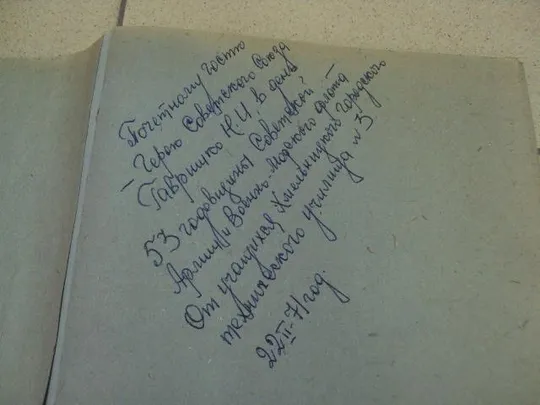 Почётному гостю
– Герою Советского Союза
Гаврищко Н И в день
53 годовщины Советской
Армии и Военно-Морского флота
От учащихся Хмельницкого городского
технического училища №3.
22 II-71 год.